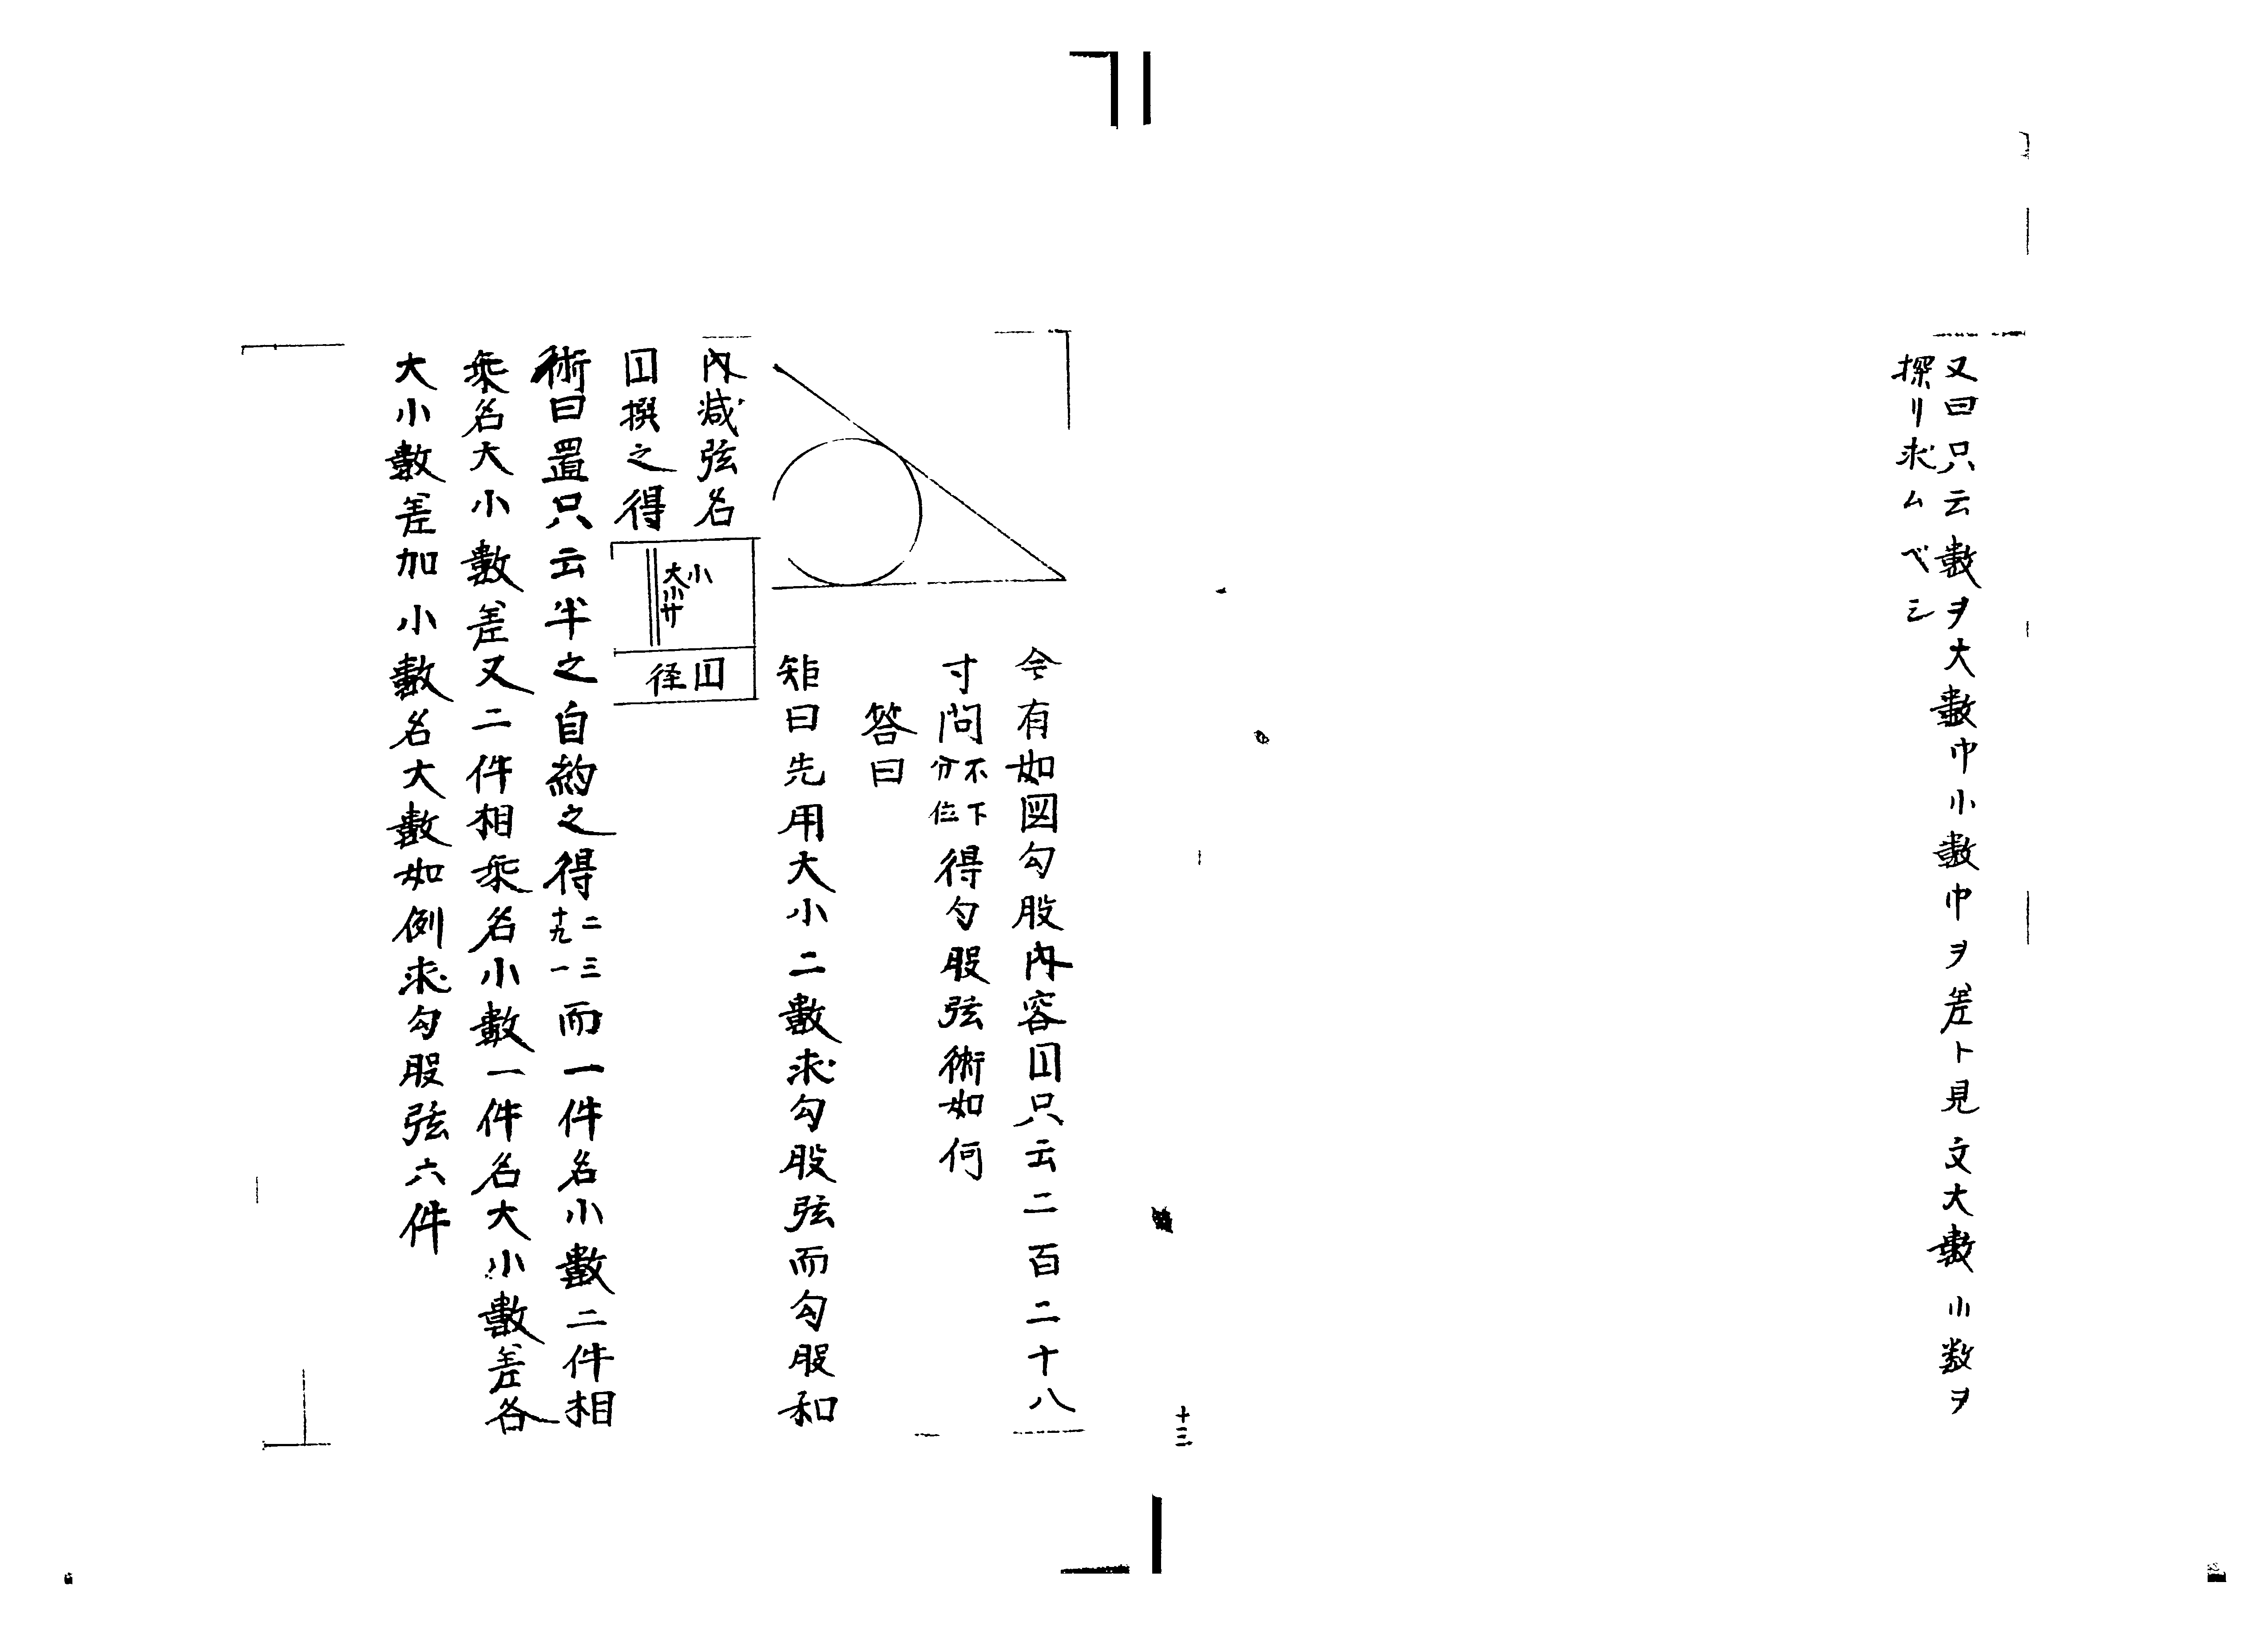 又曰只云數ヲ大數巾小數巾ヲ差ト見文大數小数ヲ
探リ求ムベシ
十三
今有如図勾股內容囗只云二百二十八
寸問不下分位得勾股弦術如何
答曰
矩曰先用大小二數求勾股弦而勾股和
內减弦名
囗撰之得
小
大
囗径
術曰置只云半之自約之得二三十九一而一件名小數二件相
乘名大小數差又二件相乘名小數一件名大小數差各
大小數差加小數名大數如例求勾股弦六件